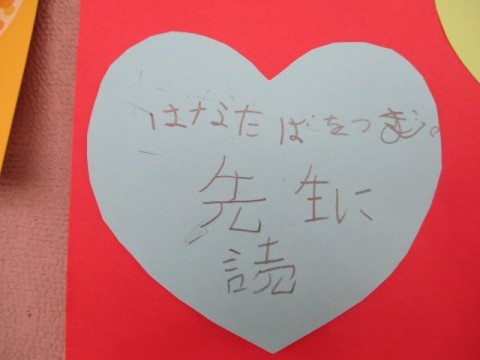 はなたばをつむ。
先生に
読